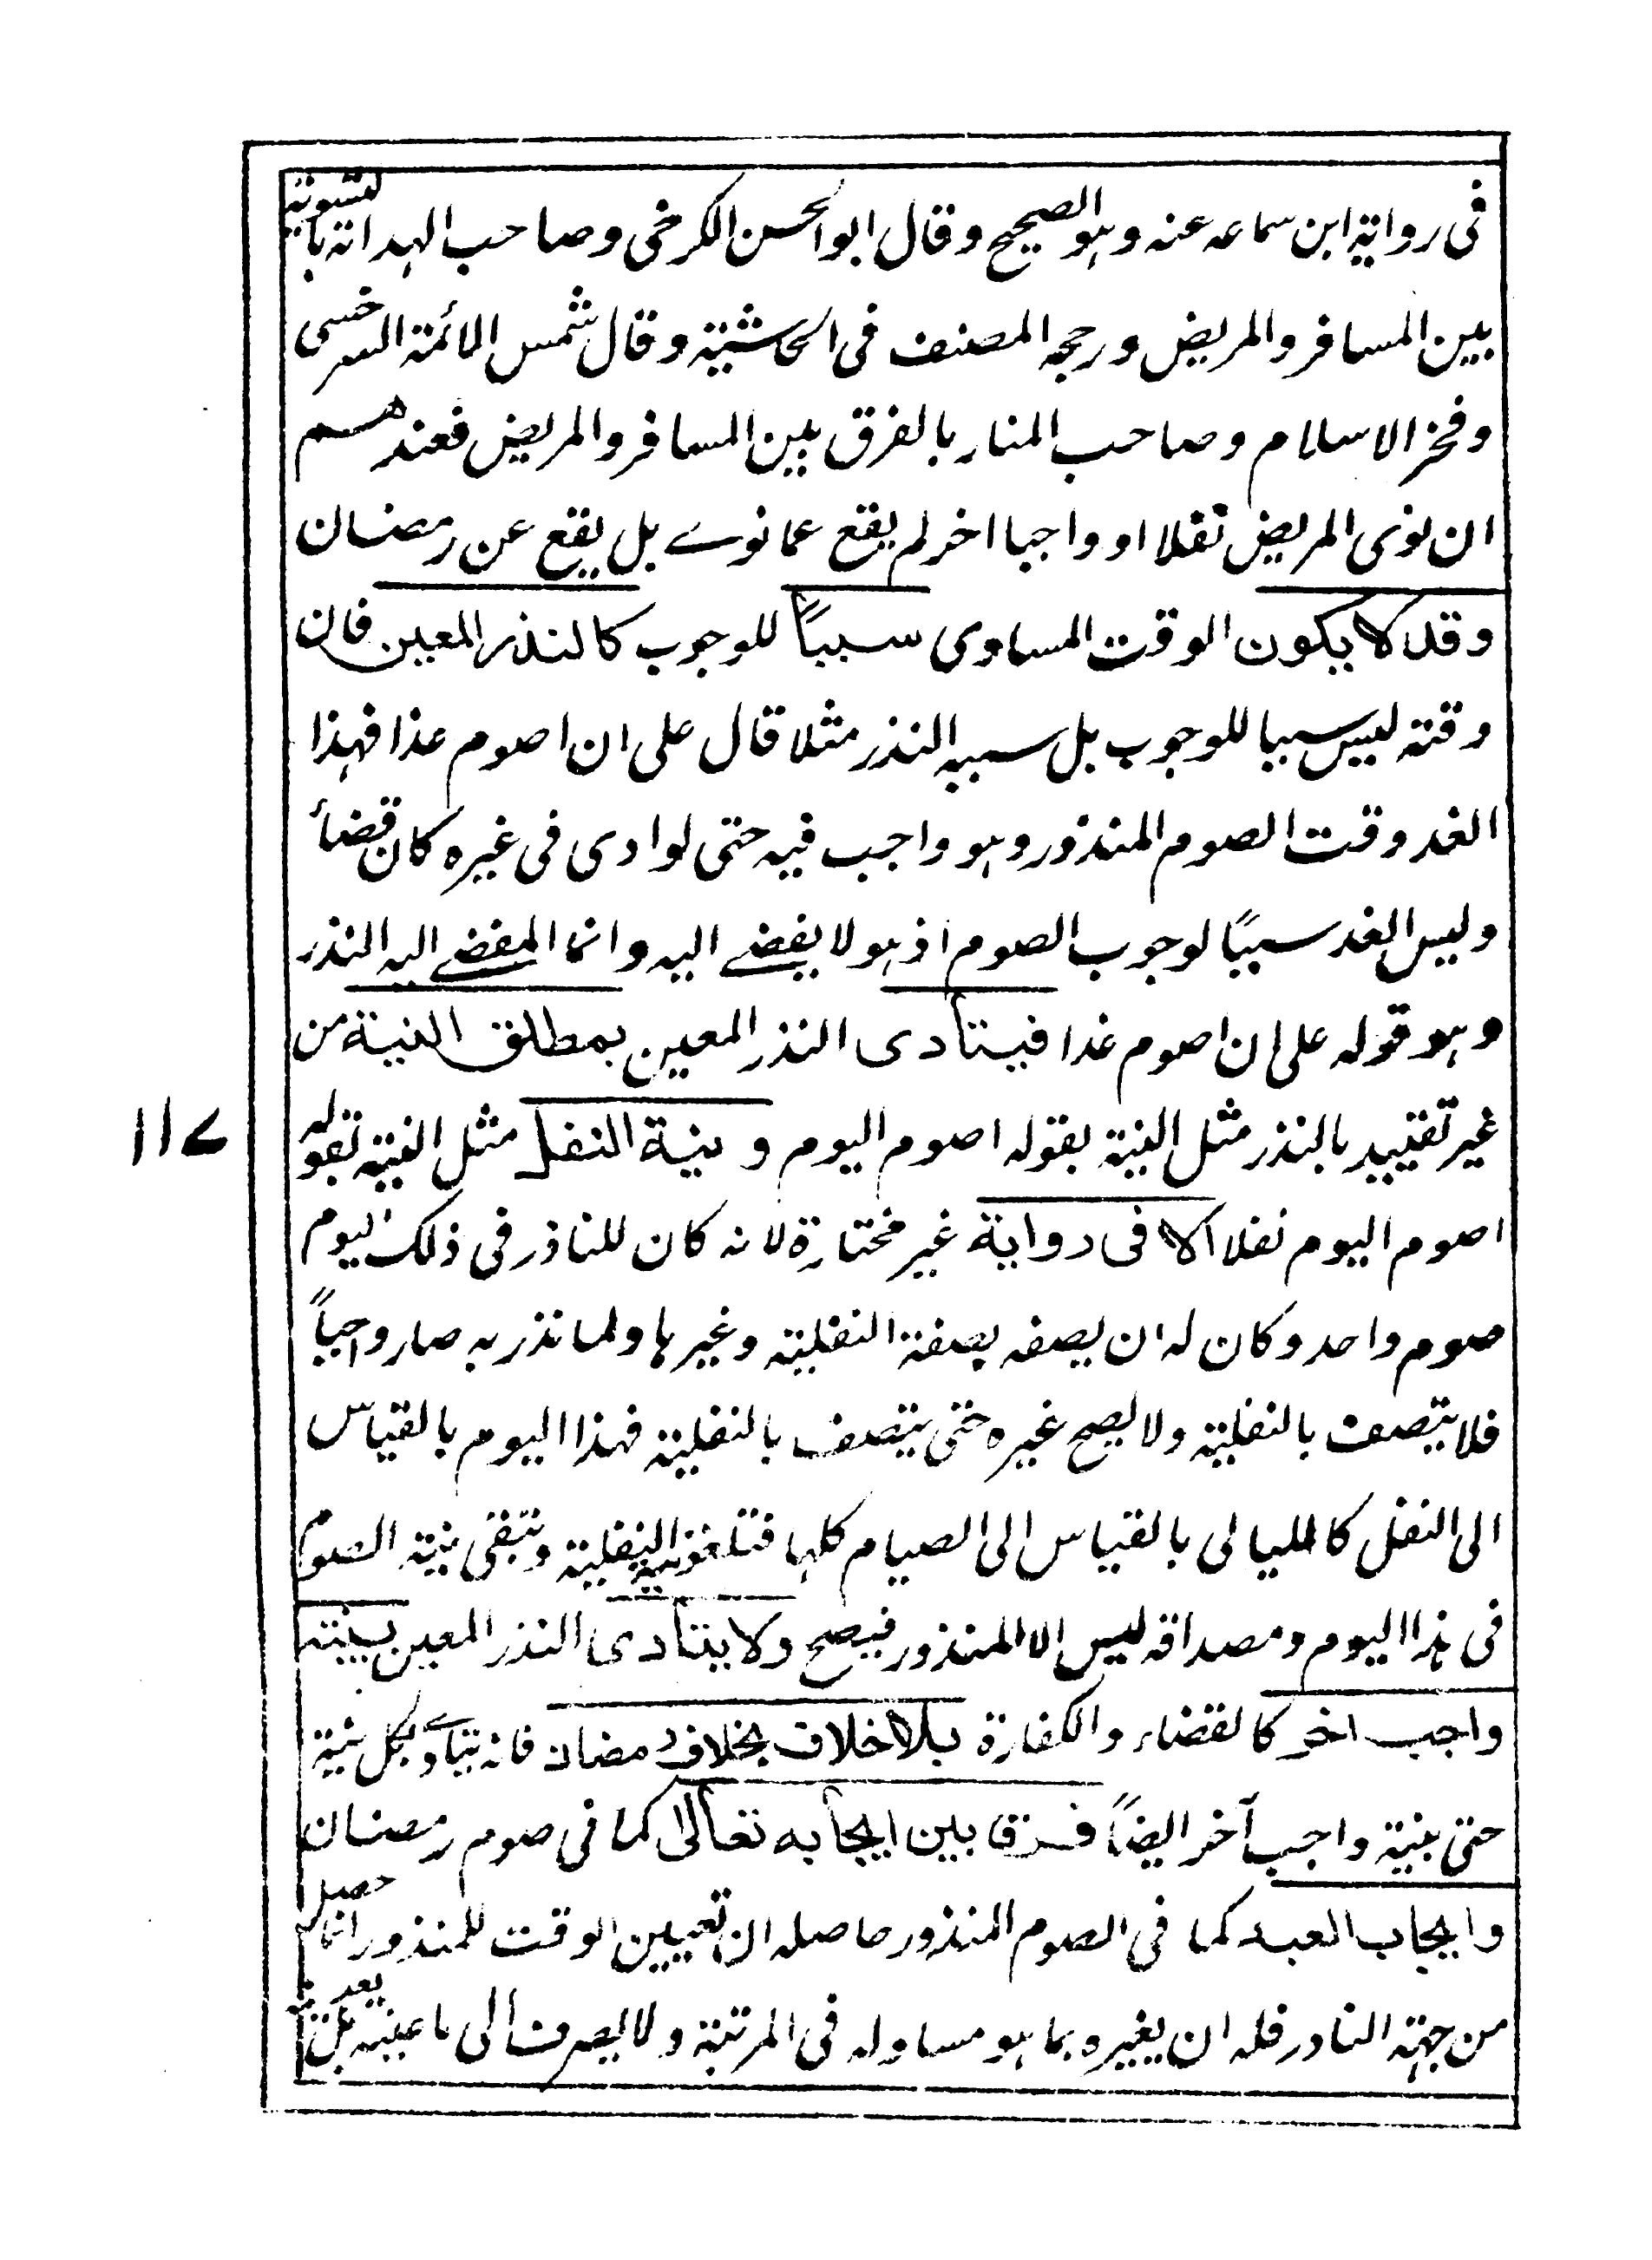 فی روایة ابن سماعه عنه وہو الصحیح وقال ابو الحسن الکرخی وصاحب الہدایة بالتسویة
بین المسافر والمریض ورجحہ المصنف فی الحاشیة وقال شمس الائمة السرخسی
وفخر الاسلام وصاحب المنار بالفرق بین المسافر والمریض فعندهم
ان نوی المریض نفلا او واجبا اخر لم یقع عما نوے بل یقع عن رمضان
وقد لا یکون الوقت المساوی سبباً للوجوب کالنذر المعین فان
وقته لیس سببا للوجوب بل سببہ النذر مثلا قال علی ان اصوم غدا فہذا
الغد وقت الصوم المنذور وہو واجب فیه حتی لو ادی فی غیره کان قضأ
ولیس الغد سببًا لوجوب الصوم اذ ہو لا یفضے الیه وانما المفضے الیه النذر
وہو قوله علی ان اصوم غدا فیتأدی النذر المعین بمطلق النیة من
غیر تقیید بالنذر مثل النیة بقوله اصوم الیوم و بنیة النفل مثل النیة بقوله
اصوم الیوم نفلا الا فی روایة غیر مختارة لانه کان للناذر فی ذلک الیوم
صوم واحد وکان له ان یصفه بصفة النفلیة وغیرہا ولما نذر به صار واجباً
فلا یتصف بالنفلیة ولا یصح غیره حتی یتصف بالنفلیة فہذا الیوم بالقیاس
الی النفل کاللیالی بالقیاس الی الصیام کلہا فتلغو نیة النفلیة وتبقی نیة الصوم
فی ہذا الیوم ومصداقه لیس الا المنذور فیصح ولا یتأدی النذر المعین بنیة
واجب اخر کالقضاء والکفارة بلا خلاف بخلاف رمضان فانه یتأدے بکل نیة
حتی بنیة واجب آخر ایضاً فرق بین ایجابه تعالٰی کما فی صوم رمضان
وایجاب العبد کما فی الصوم المنذور حاصله ان تعیین الوقت للمنذور انما حصل
من جہة الناذر فله ان یغیره بما ہو مساو له فی المرتبة ولا یصرف الی ما عینه
۱۱۷